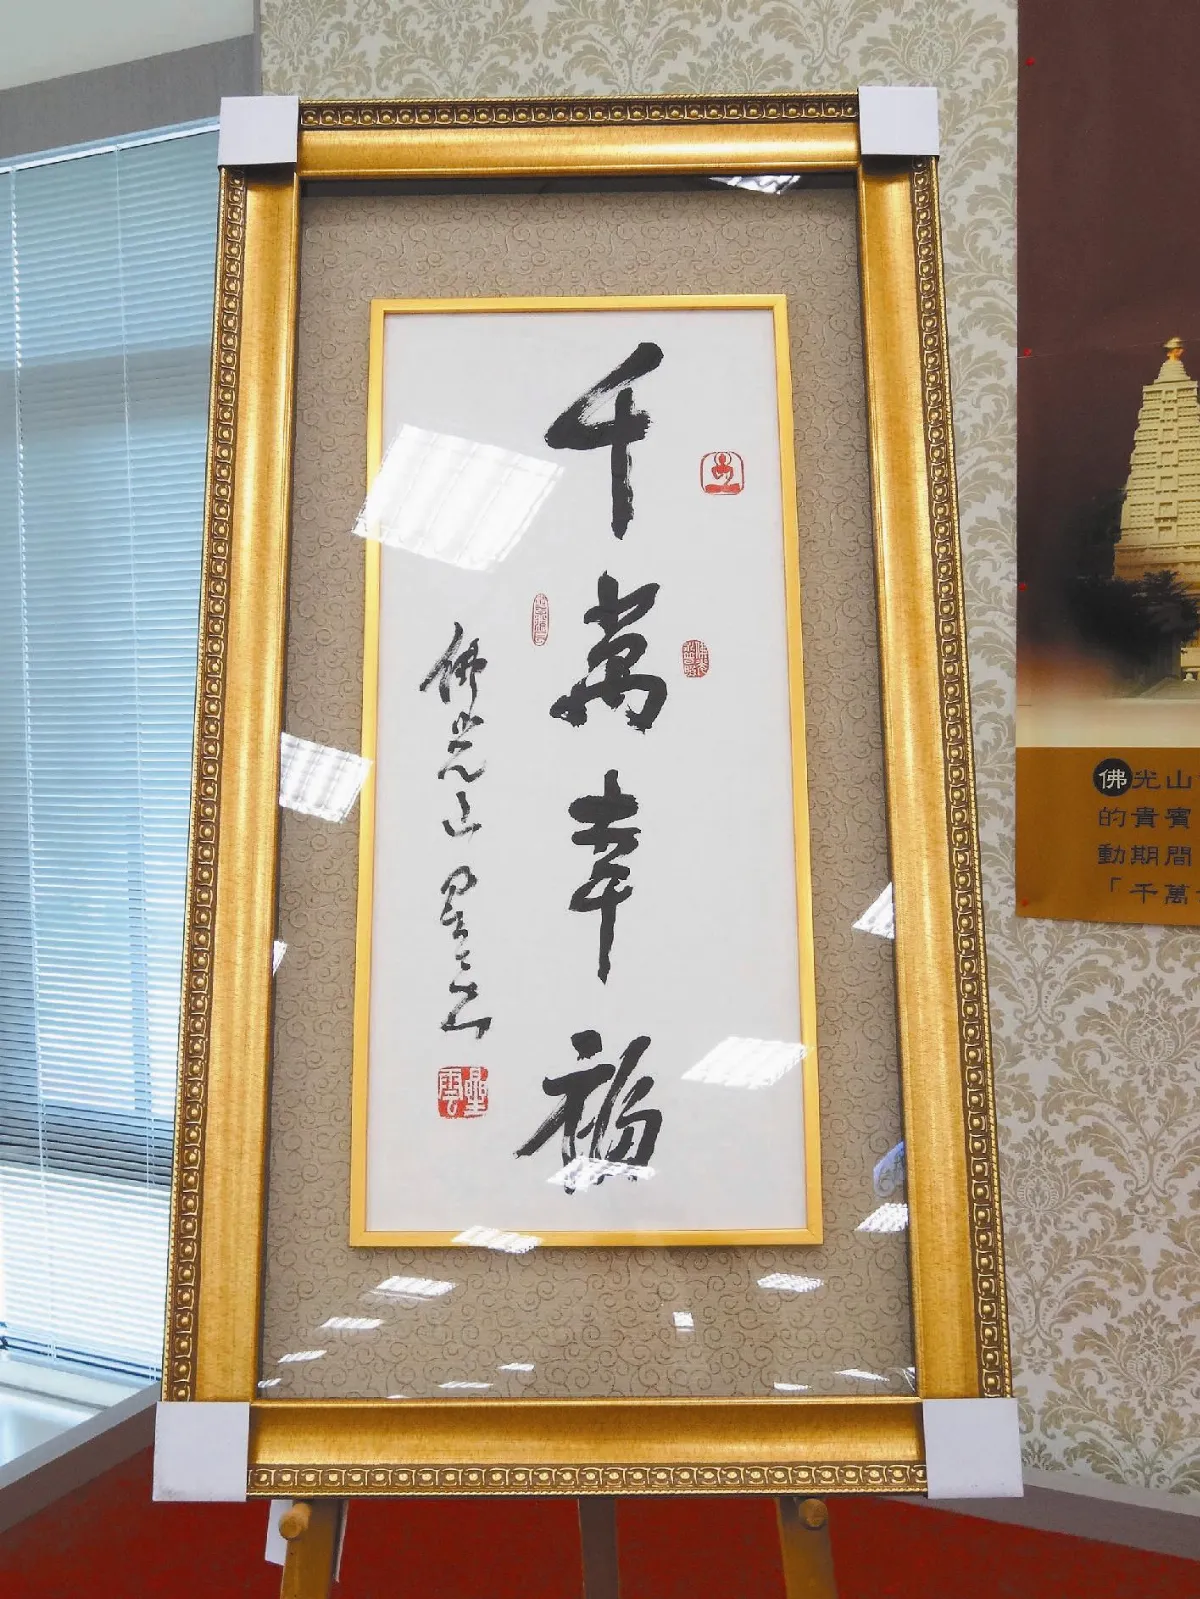 千萬幸福
佛光山 星雲
星雲
佛光山
的貴賓
動期間
「千萬